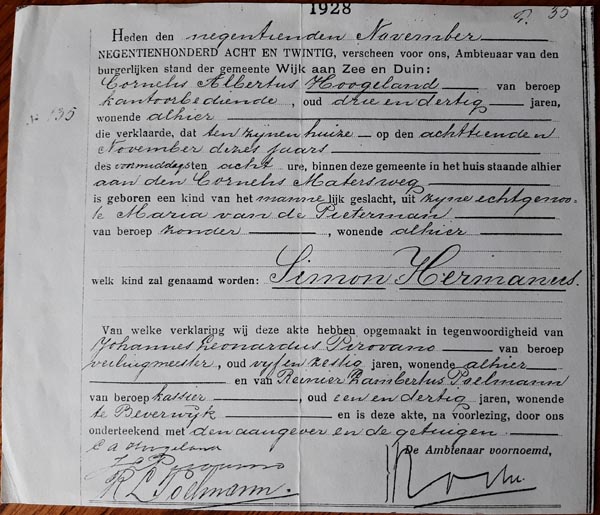 1928
35
Heden den negentienden November
NEGENTIENHONDERD ACHT EN TWINTIG, verscheen voor ons, Ambtenaar van den
burgerlijken stand der gemeente Wijk aan Zee en Duin:
Cornelis Albertus Hoogeland van beroep
kantoorbediende, oud drie en dertig jaren,
No 135
wonende alhier
die verklaarde, dat ten zijnen huize op den achttienden
November dezes jaars
des voormiddags ten acht ure, binnen deze gemeente in het huis staande alhier
aan den Cornelis Matersweg
is geboren een kind van het mannelijk geslacht, uit zijne echtgenoo-
te Maria van de Pieterman
van beroep zonder, wonende alhier
welk kind zal genaamd worden: Simon Hermanus.
Van welke verklaring wij deze akte hebben opgemaakt in tegenwoordigheid van
Johannes Leonardus Pirovano van beroep
veilingmeester, oud vijf en zestig jaren, wonende alhier
en van Reinier Lambertus Poelmann
van beroep kassier, oud een en dertig jaren, wonende
te Beverwijk en is deze akte, na voorlezing, door ons
onderteekend met den aangever en de getuigen.
C A Hoogeland
De Ambtenaar voornoemd,
R L Poelmann.